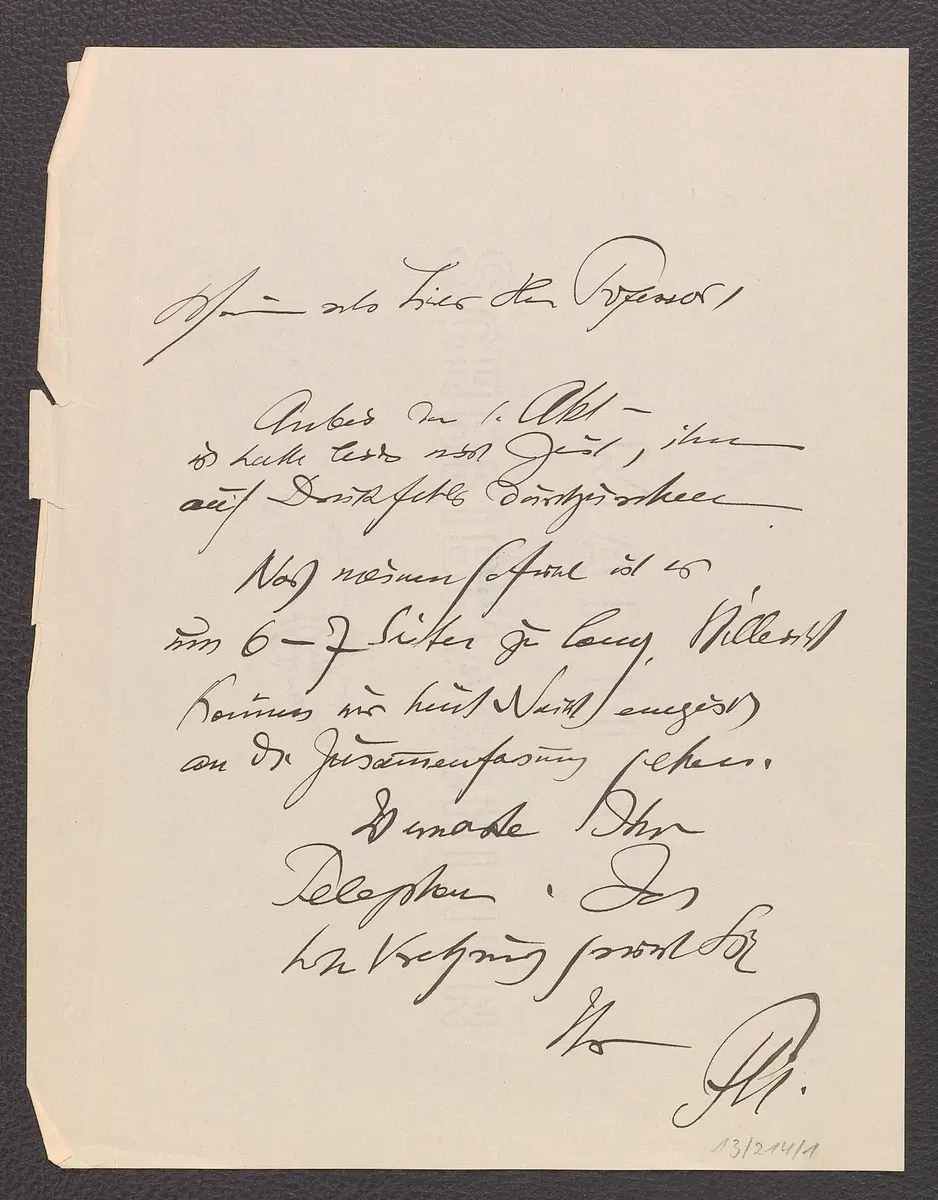 mein sehr lieber Herr Professor,
Anbei der 1. Akt –
ich hatte leider nicht Zeit, ihn
auf Druckfehler durchzusehen
Nach meinem Gefühl ist er
um 6–7 Seiten zu lang. Vielleicht
können wir heut Nacht energisch
an die Zusammenfassung gehen.
Ich erwarte Ihr
Telephon. In
hoher Verehrung grüsst Sie
Ihr
13/214/1